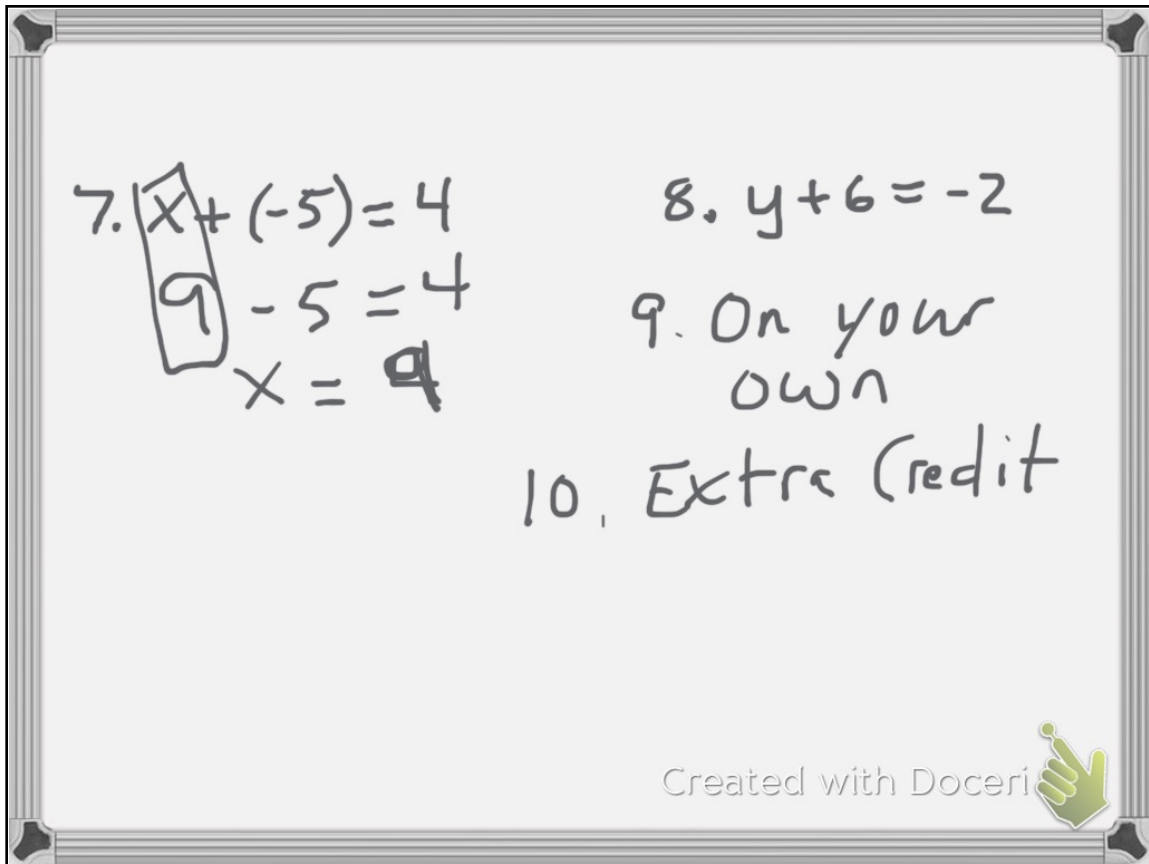 7. x + (-5) = 4
9 - 5 = 4
x = 9
8. y + 6 = -2
9. On your
own
10. Extra Credit
Created with Doceri